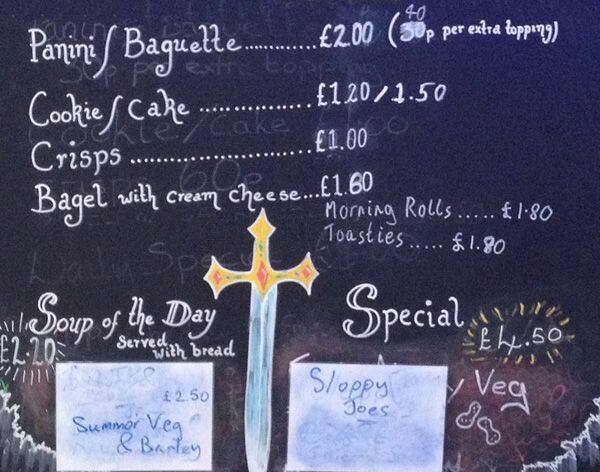 Panini/Baguette............£2.00 (40p per extra topping)
Cookie/Cake ..............£1.20/1.50
Crisps ......................£1.00
Bagel with cream cheese...£1.60
Morning Rolls ..... £1.80
Toasties ..... £1.80
Soup of the Day
Served with bread
£2.20
£2.50
Summor Veg
& Barley
Special
£4.50
Sloppy
Joes
Veg